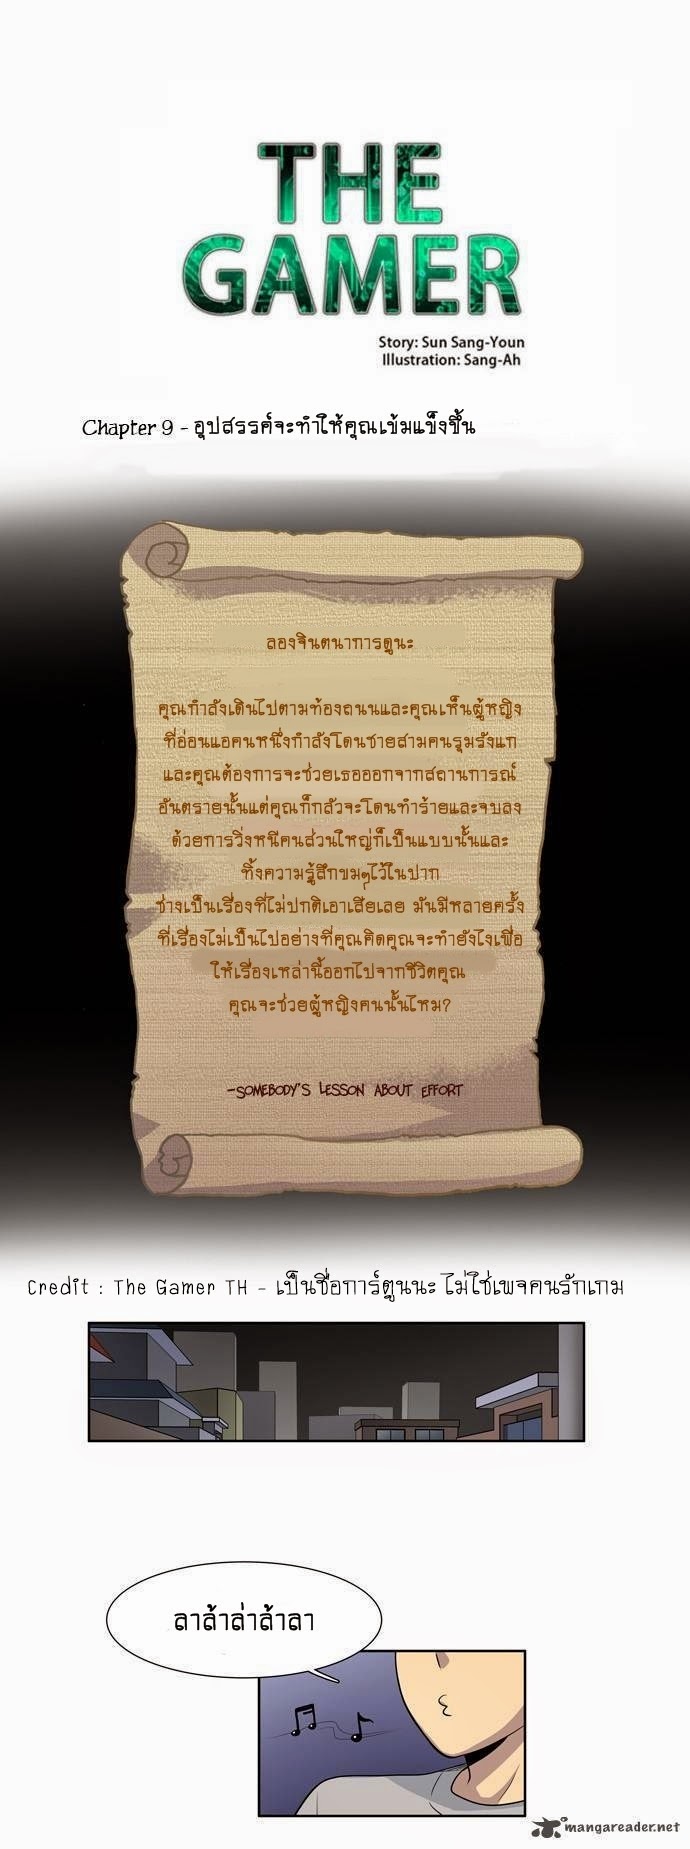 THE
GAMER
Story: Sun Sang-Youn
Illustration: Sang-Ah
Chapter 9 - อุปสรรค์จะทำให้คุณเข้มแข็งขึ้น
ลองจินตนาการดูนะ
คุณกำลังเดินไปตามท้องถนนและคุณเห็นผู้หญิง
ที่อ่อนแอคนหนึ่งกำลังโดนชายสามคนรุมรังแก
และคุณต้องการจะช่วยเธอออกจากสถานการณ์
อันตรายนั้นแต่คุณก็กลัวจะโดนทำร้ายและจบลง
ด้วยการวิ่งหนีคนส่วนใหญ่ก็เป็นแบบนั้นและ
ทิ้งความรู้สึกขมๆไว้ในปาก
ช่างเป็นเรื่องที่ไม่ปกติเอาเสียเลย มันมีหลายครั้ง
ที่เรื่องไม่เป็นไปอย่างที่คุณคิดคุณจะทำยังไงเพื่อ
ให้เรื่องเหล่านี้ออกไปจากชีวิตคุณ
คุณจะช่วยผู้หญิงคนนั้นไหม?
-SOMEBODY'S LESSON ABOUT EFFORT
Credit : The Gamer TH - เป็นชื่อการ์ตูนนะ ไม่ใช่เพจคนรักเกม
ลาล้าล่าล้าลา
mangareader.net